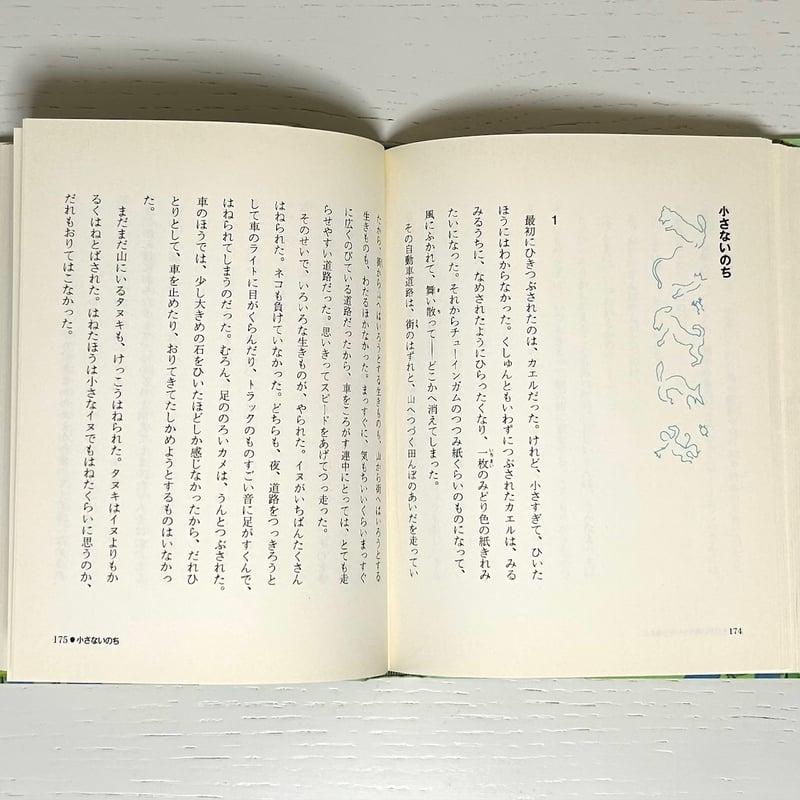 小さないのち
1
最初にひきつぶされたのは、カエルだった。けれど、小さすぎて、ひいた
ほうにはわからなかった。くしゅんともいわずにつぶされたカエルは、みる
みるうちに、なめされたようにひらったくなり、一枚のみどり色の紙きれみ
たいになった。それからチューインガムのつつみ紙くらいのものになって、
風にふかれて、舞い散って――どこかへ消えてしまった。
その自動車道路は、街のはずれと、山へつづく田んぼのあいだを走ってい
174
たから、街から山へはいろうとする生きものも、山から街へはいろうとする
生きものも、わたるほかなかった。まっすぐに、気もちいいくらいまっすぐ
に広くのびている道路だったから、車をころがす連中にとっては、とても走
らせやすい道路だった。思いきってスピードをあげてつっ走った。
そのせいで、いろいろな生きものが、やられた。イヌがいちばんたくさん
はねられた。ネコも負けていなかった。どちらも、夜、道路をつっきろうと
して車のライトに目がくらんだり、トラックのものすごい音に足がすくんで、
はねられてしまうのだった。むろん、足ののろいカメは、うんとつぶされた。
車のほうでは、少し大きめの石をひいたほどしか感じなかったから、だれひ
とりとして、車を止めたり、おりてきてたしかめようとするものはいなかっ
た。
まだまだ山にいるタヌキも、けっこうはねられた。タヌキはイヌよりもか
るくはねとばされた。はねたほうは小さなイヌでもはねたくらいに思うのか、
だれもおりてはこなかった。
175●小さないのち